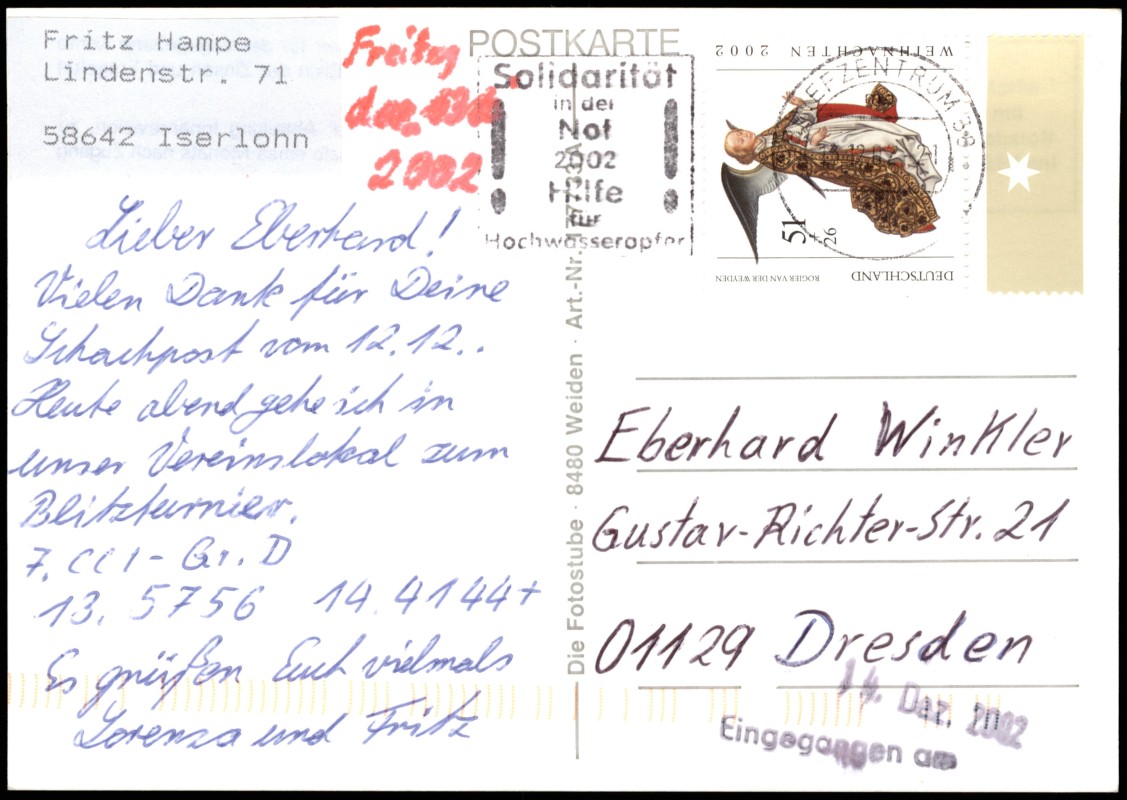 Fritz Hampe
Lindenstr. 71
58642 Iserlohn
Freitag
den 13.12.
2002
Lieber Eberhard!
Vielen Dank für Deine
Schachpost vom 12.12..
Heute abend gehe ich in
unser Vereinslokal zum
Blitzturnier.
7. CCI - Gr. D
13. 5756 14. 4144+
Es grüßen Euch vielmals
Lorenza und Fritz
POSTKARTE
Solidarität
in der
Not
2002
Hilfe
für
Hochwasseropfer
WEIHNACHTEN 2002
BRIEFZENTRUM 58
51
+26
DEUTSCHLAND
ROGIER VAN DER WEYDEN
Die Fotostube · 8480 Weiden · Art.-Nr.
Eberhard Winkler
Gustav-Richter-Str. 21
01129 Dresden
14. Dez. 2002
Eingegangen am